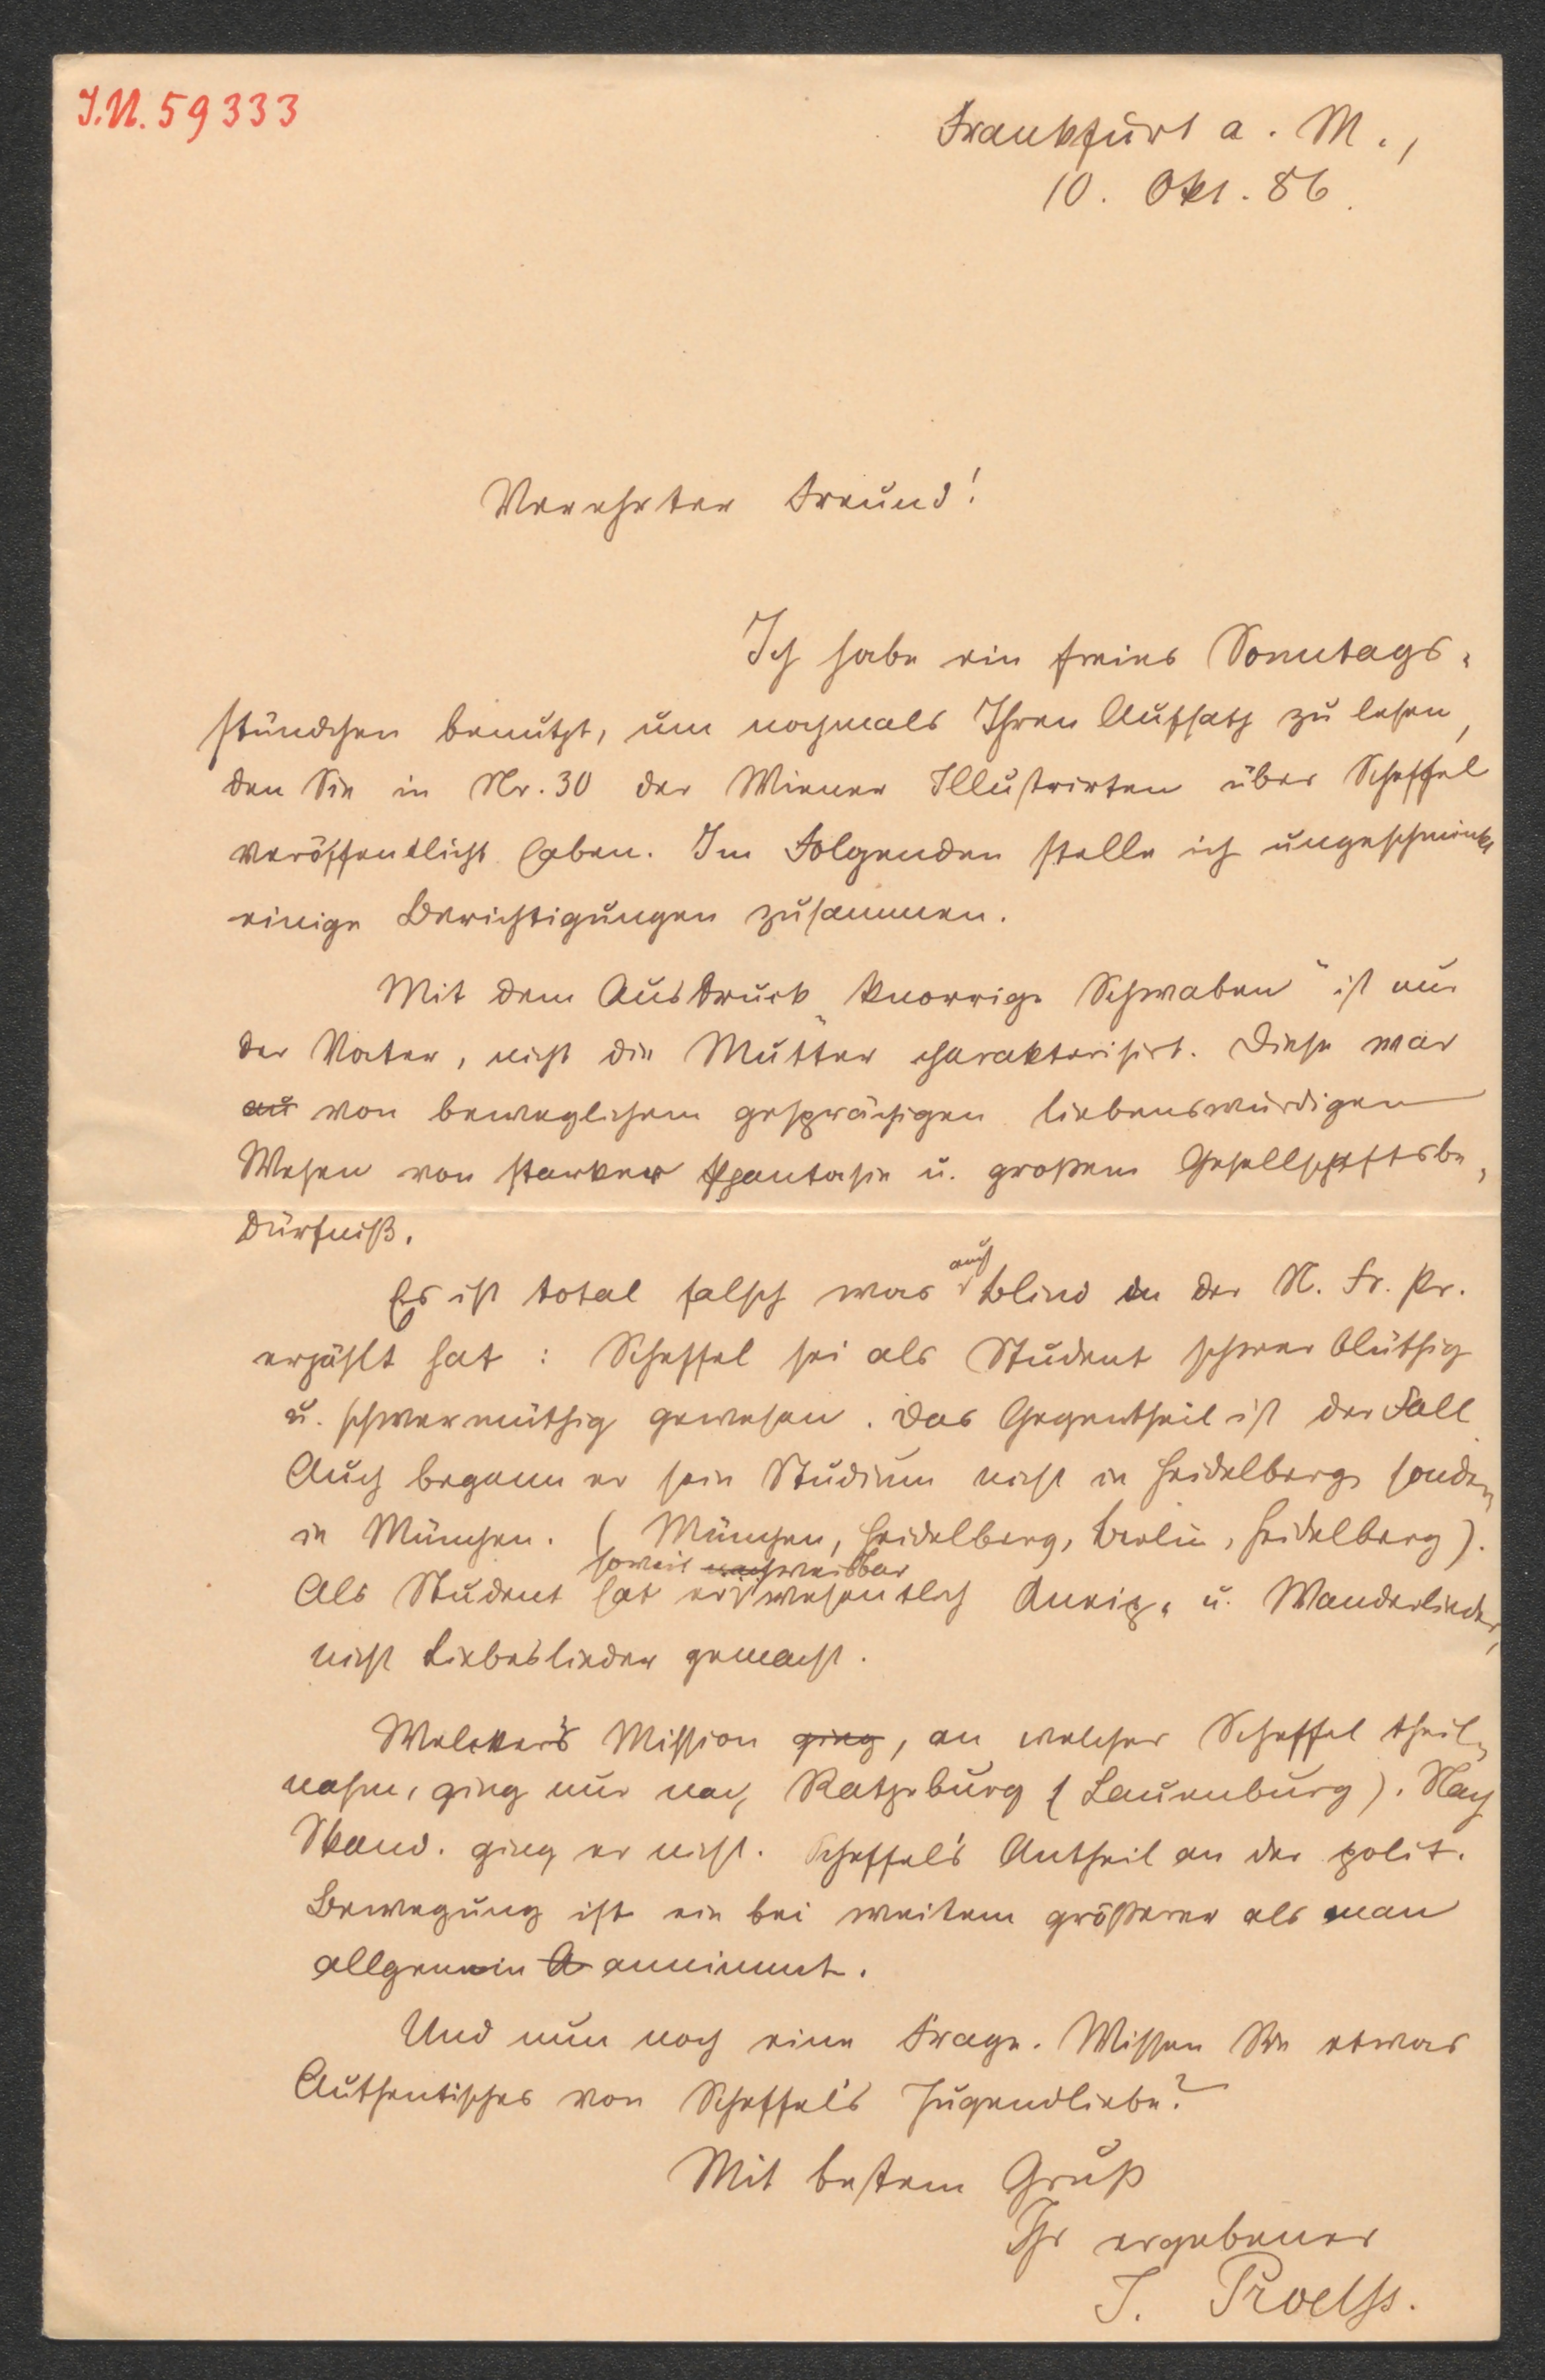 I.N. 59333
Frankfurt a. M.,
10. Okt. 86.
Verehrter Freund!
Ich habe ein freies Sonntags-
stündchen benutzt, um nochmals Ihren Aufsatz zu lesen,
den Sie in Nr. 30 der Wiener Illustrirten über Scheffel
veröffentlicht haben. Im Folgenden stelle ich ungeschminkt
einige Berichtigungen zusammen.
Mit dem Ausdruck „knorrige Schwaben“ ist nur
der Vater, nicht die Mutter charakterisirt. Diese war
von beweglichem gesprächigen liebenswürdigen
Wesen von starker Phantasie u. großem Gesellschaftsbe-
dürfniß.
Es ist total falsch was auch Blind in der N. Fr. Pr.
erzählt hat: Scheffel sei als Student schwerblüthig
u. schwermüthig gewesen. Das Gegentheil ist der Fall
Auch begann er sein Studium nicht in Heidelberg sondern
in München. (München, Heidelberg, Berlin, Heidelberg).
Als Student hat er soweit nachweisbar wesentlich Kneip- u. Wanderlieder,
nicht Liebeslieder gemacht.
Welcker's Mission ging, an welcher Scheffel theil-
nahm, ging nur nach Ratzeburg (Lauenburg). Nach
Skand. ging er nicht. Scheffel's Antheil an der polit.
Bewegung ist ein bei weitem größerer als man
allgemein annimmt.
Und nun noch eine Frage. Wissen Sie etwas
Authentisches von Scheffel's Jugendliebe?
Mit bestem Gruß
Ihr ergebener
J. Proelss.